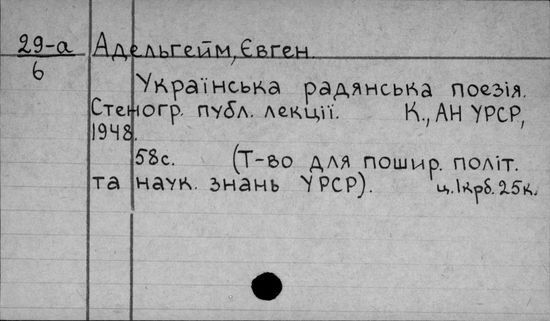 29-а
6
Адельгейм, Євген.
Українська радянська поезія.
Стеногр. публ. лекції. К., АН УРСР,
1948.
58с. (Т-во для пошир. політ.
та наук. знань УРСР). ц. 1крб. 25к.